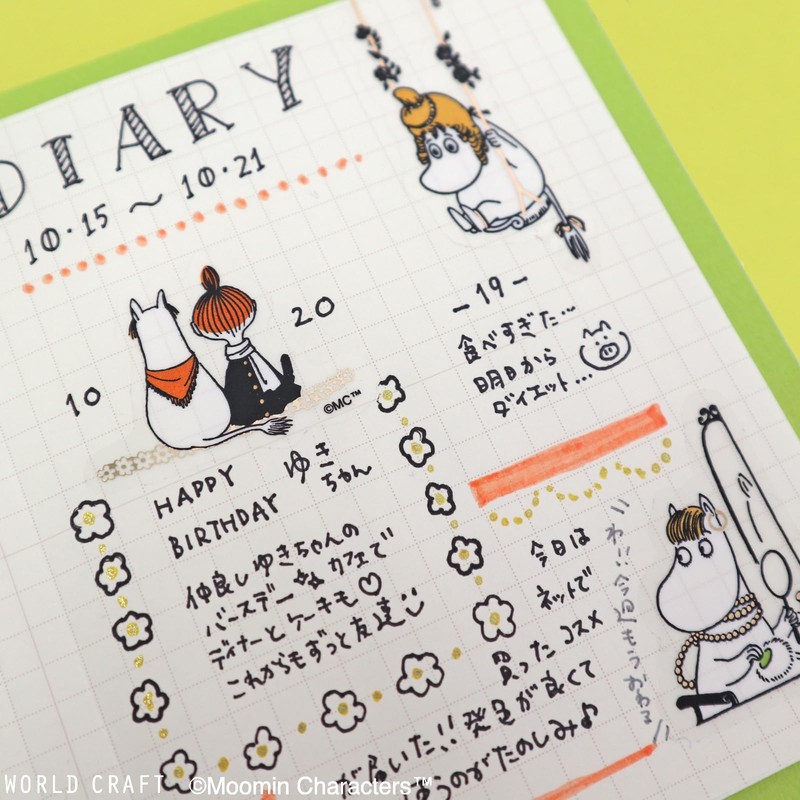 DIARY
10.15 ~ 10.21
10
20
©MC™
HAPPY
BIRTHDAY
ゆき
ちゃん
仲良しゆきちゃんの
バースデー カフェで
ディナーとケーキも♡
これからもずっと友達
-19-
食べすぎた…
明日から
ダイエット…
今日は
ネットで
買ったコスメ
が届いた!!発色が良くて
うのがたのしみ♪
わ!!今週もうおわる
WORLD CRAFT ©Moomin Characters™